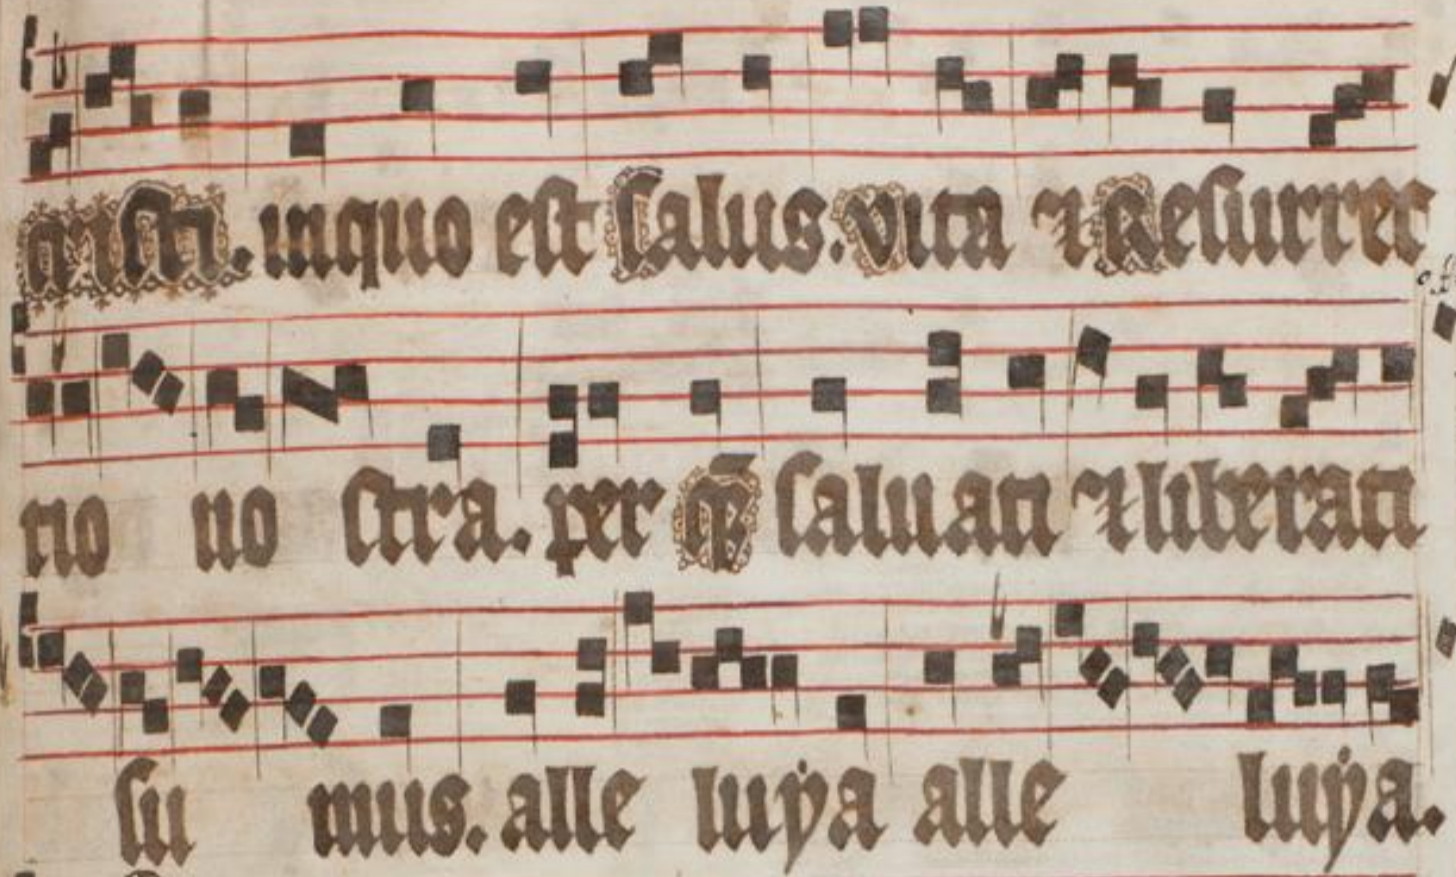 xpisti. inquo est salus. Vita ⁊ Resurrec
tio no stra. per qē saluati ⁊ liberati
su mus. alle luẏa alle luẏa.